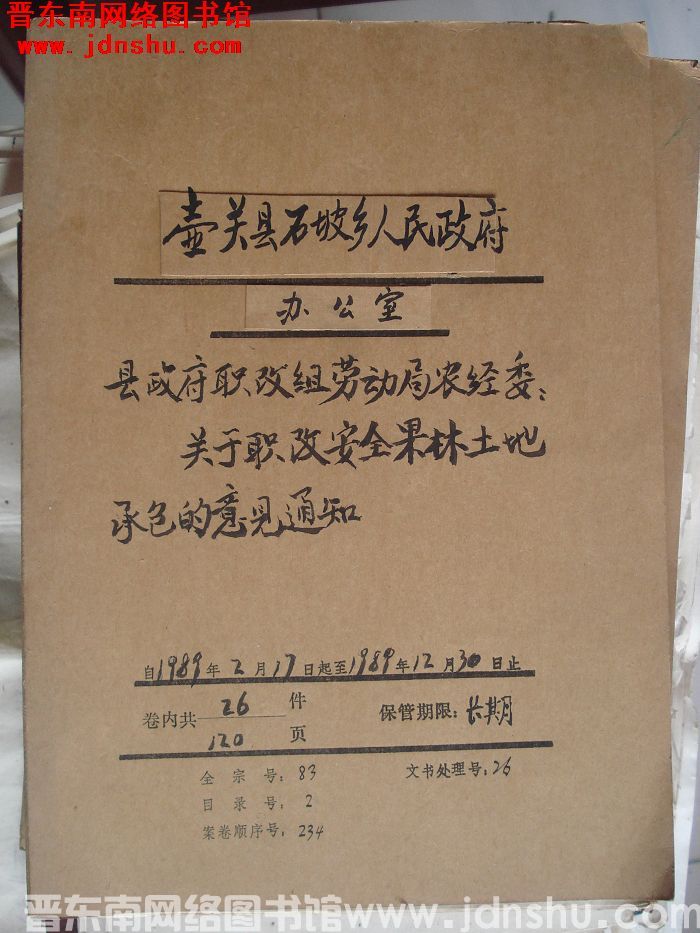 晋东南网络图书馆
www.jdnshu.com
壶关县石坡乡人民政府
办公室
县政府职改组劳动局农经委:
关于职改安全果林土地
承包的意见通知
自1989年2月17日起至1989年12月30日止
卷内共 26 件
120 页
保管期限:长期
全宗号:83
文书处理号:26
目录号:2
案卷顺序号:234
晋东南网络图书馆www.jdnshu.com